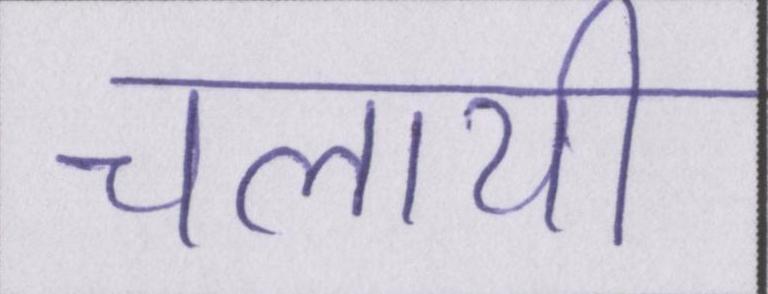 चलायी